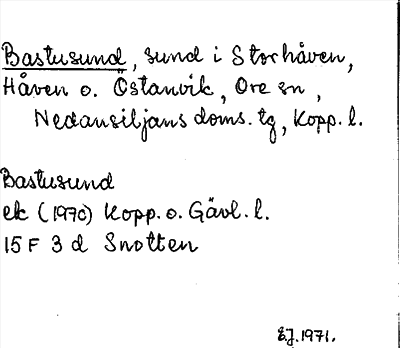 Bastusund, sund i Storhåven,
Håven o. Östanvik, Ore sn,
Nedansiljans doms. tg, Kopp. l.
Bastusund
ek (1970) Kopp. o. Gävl. l.
15 F 3 d Snotten
EJ. 1971.